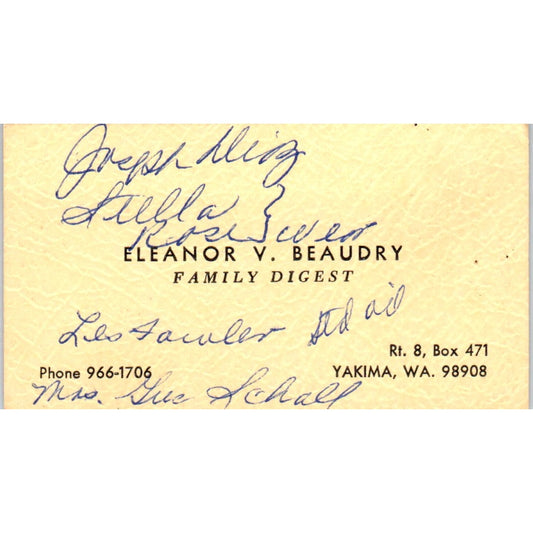 Joseph Diaz
Stella }
Rose
ELEANOR V. BEAUDRY
FAMILY DIGEST
Les Fowler Std oil
Rt. 8, Box 471
Phone 966-1706 YAKIMA, WA. 98908
Mrs. Gus Schall